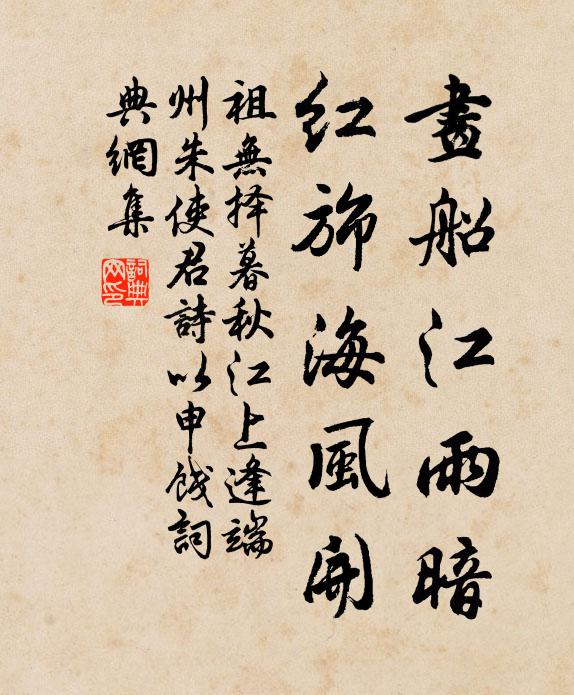 畫船江雨暗
紅旆海風開
祖無择暮秋江上逢端
州朱使君詩以申餞詞
典網集
詞典
网印